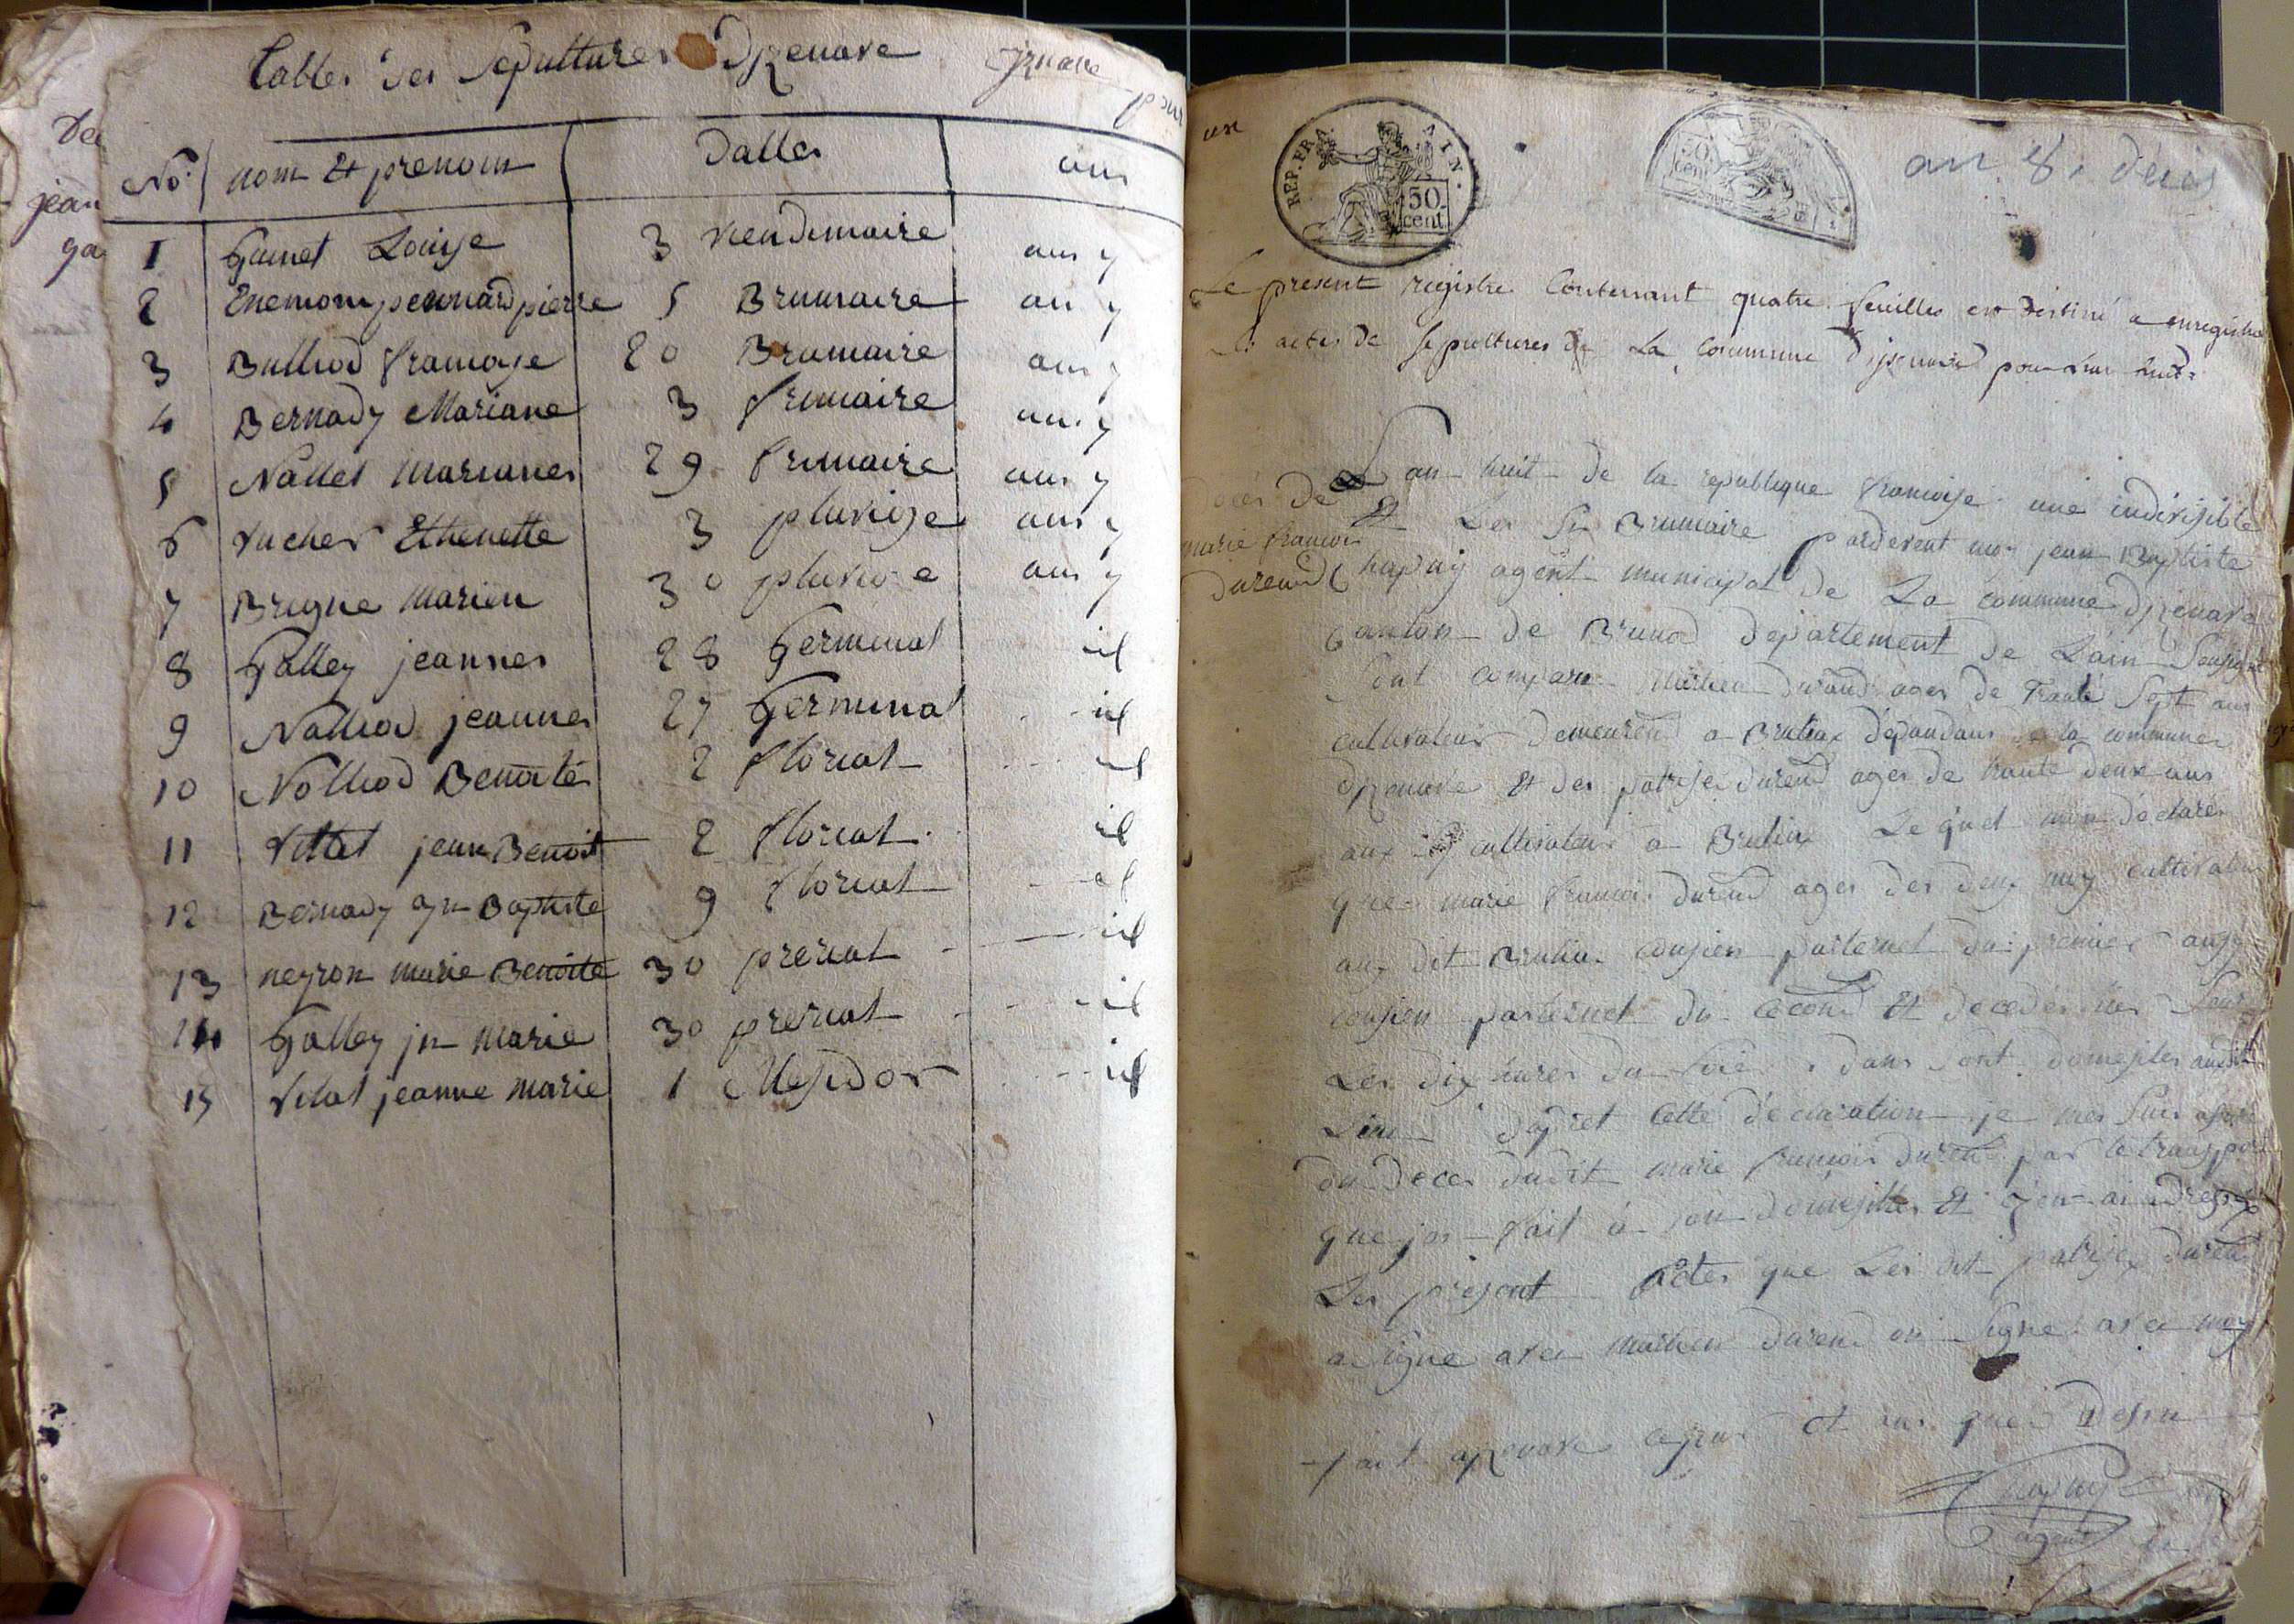 Tables des Sepultures Dizenave
No. nom Et prenom Dattes ans
1 Gunet Louise 3 vendemaire ans 7
2 Enemom pennard pierre 5 Brumaire an 7
3 Bulliod francoise 20 Brumaire ans 7
4 Bernady Mariane 3 frimaire ans 7
5 Nallet mariannes 29 frimaire ans 7
6 vucher Ethenette 3 pluviose ans 7
7 Brigne marien 30 pluviose ans 7
8 Galley jeannes 28 Germinal id
9 Nalliod jeannes 27 Germinal id
10 Nolliod Benoite 2 floreal id
11 vittet jean Benoit 2 floreal id
12 Bernady jn Baptiste 9 floreal id
13 neyron marie Benoite 30 prerial id
14 Galley jn marie 30 prerial id
15 vitat jeanne marie 1 Messidor id
dee
jean
ga
REP. FRA. AIN.
50 cent
50 cent
an 8. décès
Le present registre Contenant quatre feuilles est destiné a enregistrer
les actes de sepultures de La Commune d'izenave pour l'an huit
décès de
marie francois
durand
L'an huit de la republique francoise une indivisible
Et Les six Brumaire pardevent moy jean Baptiste
Chapuy agent municipal de La commune Dizenave
Canton de Brenod Departement de Lain Soussigné
Sont comparu Mathieu durand ages de Trante Sept ans
cultivateur demeurend a Brutiax dépandans de la commune
Dizenave Et des patrise durend ages de trante deux ans
aussy cultivateur a Brutiax Le quel mon déclarés
que marie francois durend ages des deux moy cultivateur
aux dit Brutiax cousien parternel du premier aussy
cousien parternel du cecond Et decedés hier
Les dix heures du Soir dans Sont domesiles audit
Lieu daprет cette déclaration je mes suis assuré
du deces dudit marie francois durend par le transport
que jai fait a son domesille Et jen ai adressé
Les présent Actes que Les dit patrise durend
a signe avec mathieu durend on Signe avec moy
fait a izenave cejour et ans que Desu
Chapuy
agent